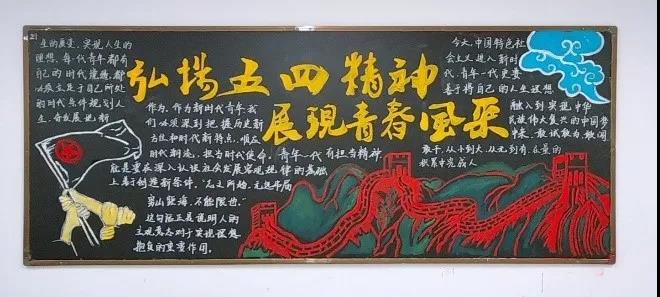 弘扬五四精神
展现青春风采
生的展变,实现人生的
理想。每一代青年都有
自己的时代境遇,都
必须立足于自己所处
的时代条件规划人
生,奋发展现新
作为。作为新时代青年,我
们必须深刻把握历史新
方位和时代新特点,顺应
时代新,担当时代使命。青年一代有担当精神
就是要在深入认识社会发展客观规律的基础
上善于创造新条件,“志之所趋,无远弗届
穷山距海,不能限也。”
这句话正是说明人的
主观意志对于实现理想
抱负的重要作用。
今天,中国特色社
会主义进入新时
代,青年一代更要
善于将自己的人生理想
融入到实现中华
民族伟大复兴的中国梦
中来,敢试敢为,敢闯
敢干,从小到大,从无到有,在量的
积累中完成人